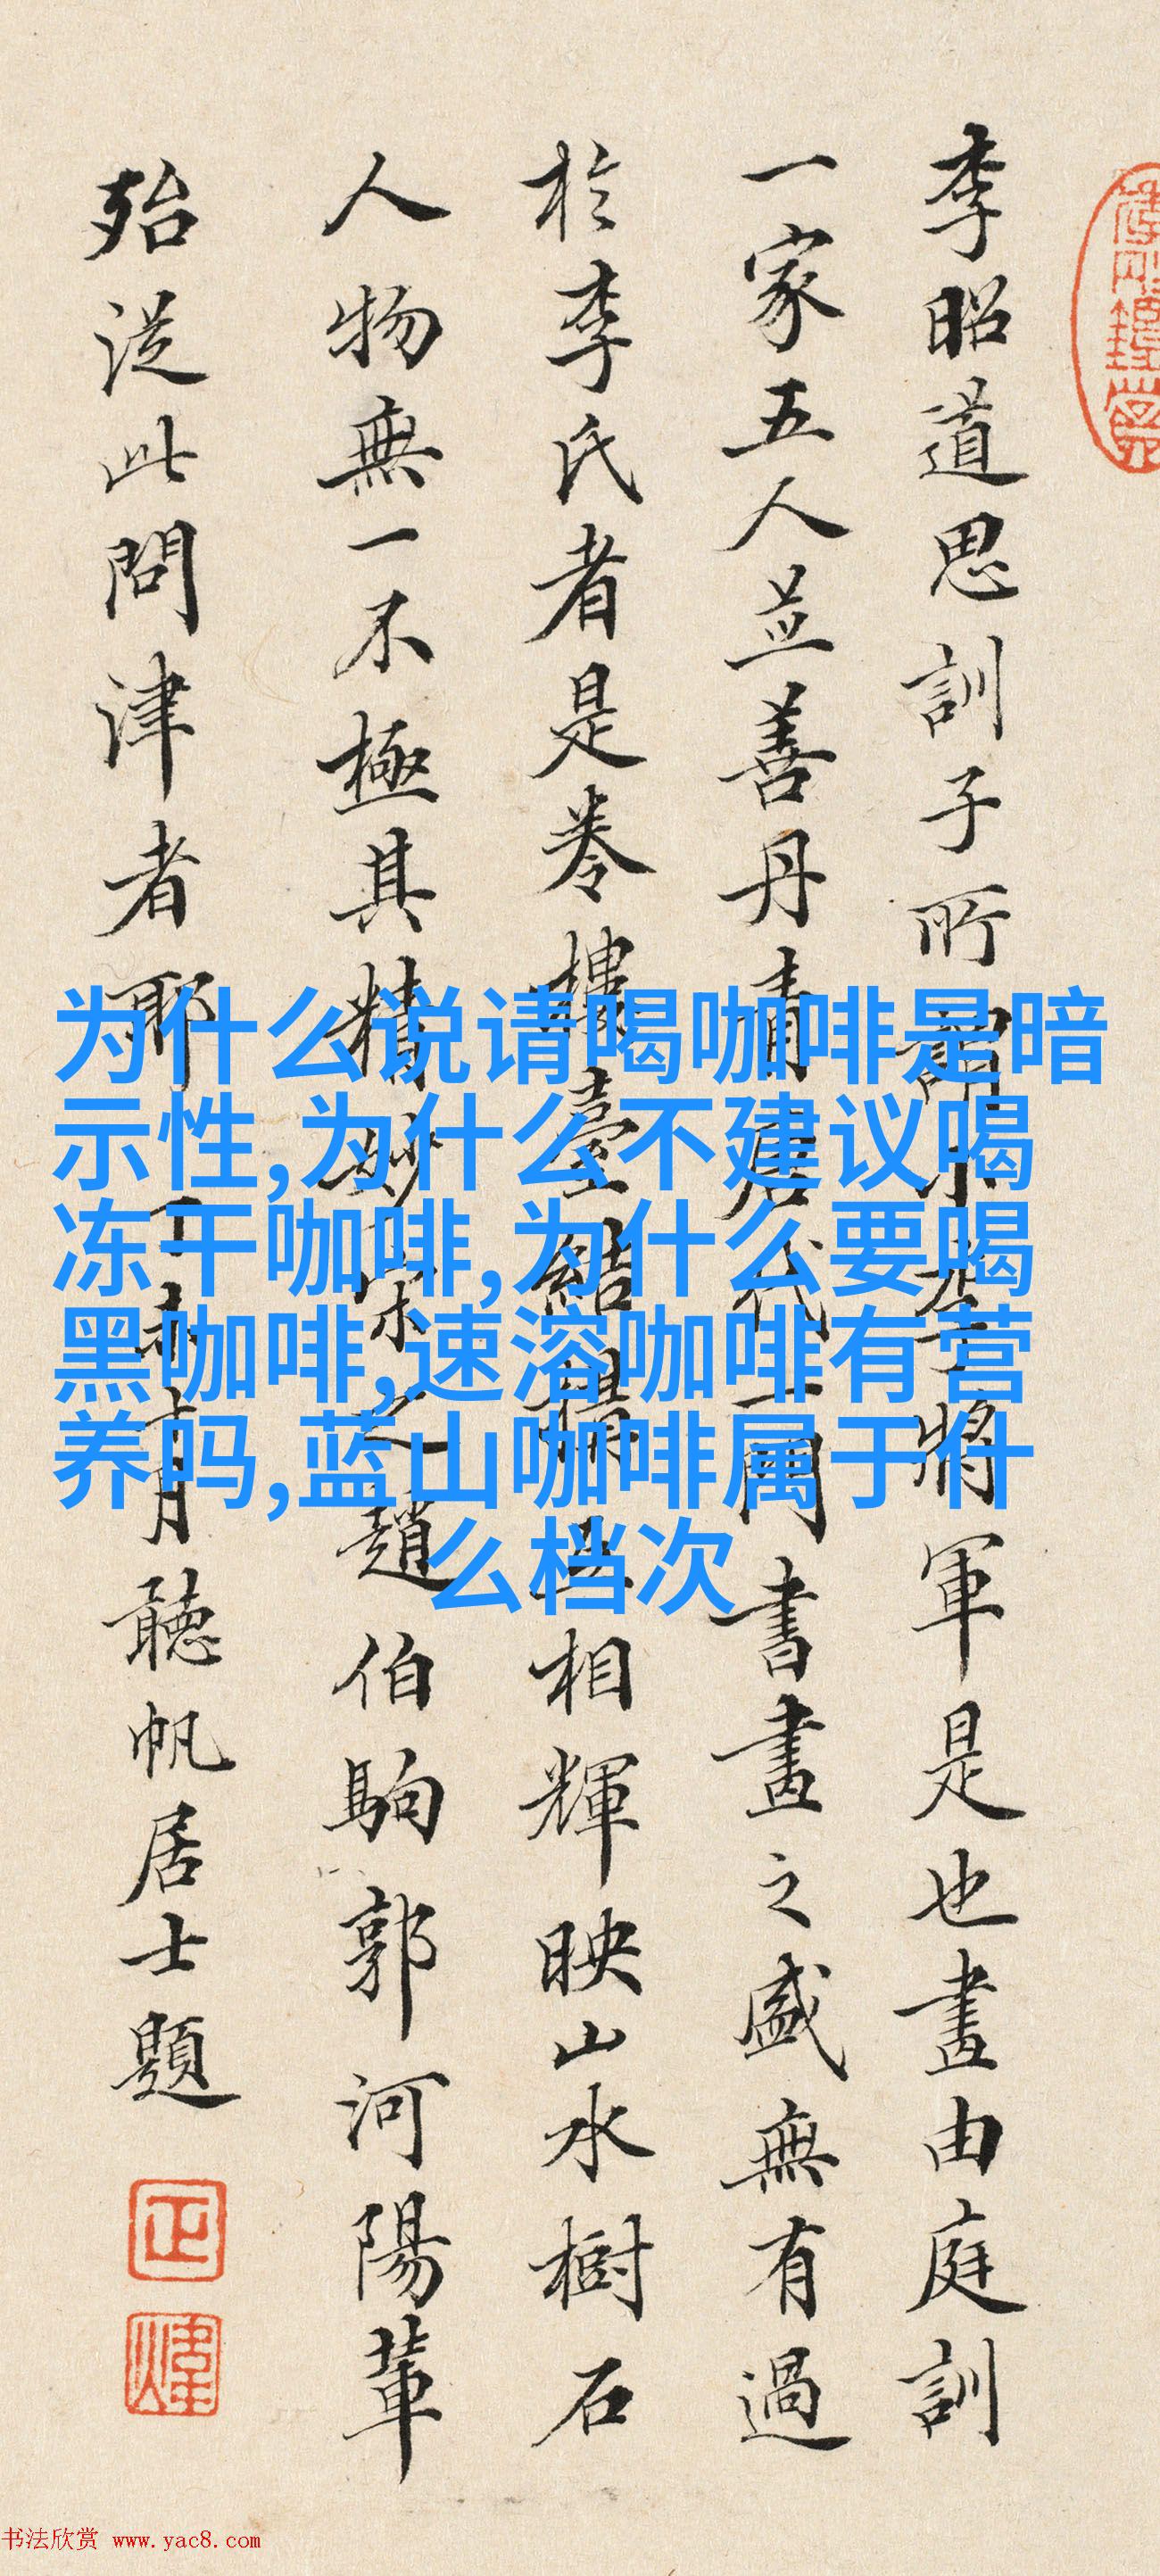 李昭道思訓子所謂小李將軍是也畫由庭訓
一家五人並善丹青唐代一門書畫之盛無有過
於李氏者是卷樓臺結構互相輝映山水樹石
人物無一不極其精妙宋之趙伯駒郭河陽輩
殆從此問津者耶丁十月聽帆居士題
正
煒
为什么说请喝咖啡是暗
示性,为什么不建议喝
冻干咖啡,为什么要喝
黑咖啡,速溶咖啡有营
养吗,蓝山咖啡属于什
么档次
书法欣赏 www.yac8.com